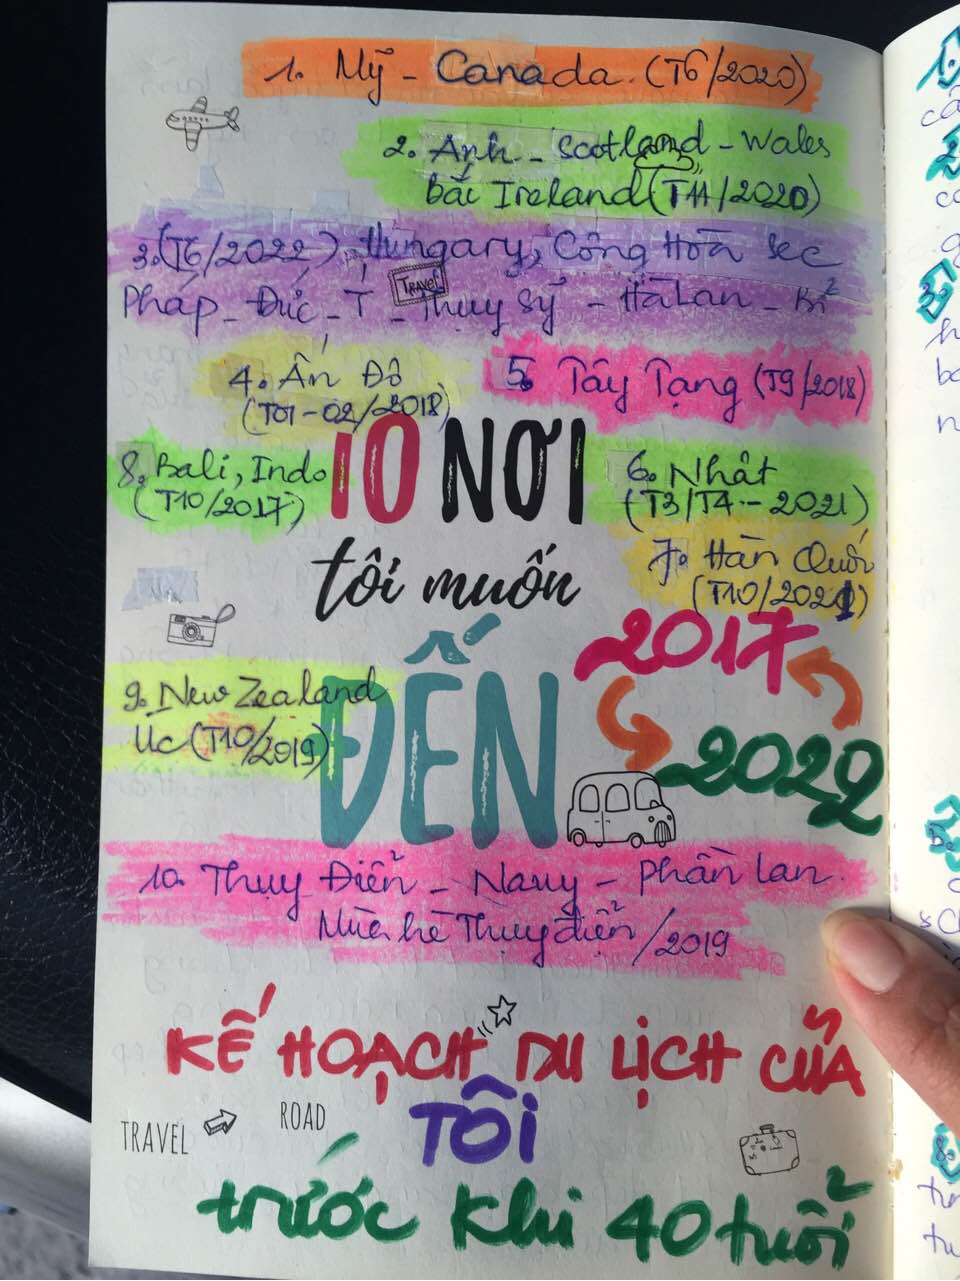 1. Mỹ - Canada. (T6/2020)
2. Anh - Scotland - Wales
bắc Ireland (T11/2020)
3. (T6/2022) Hungary, Cộng Hoà Séc
TRAVEL
Pháp - Đức - Ý - Thụy Sỹ - Hà Lan - Bỉ
4. Ấn Độ
(T01-02/2018)
5. Tây Tạng (T9/2018)
8. Bali, Indo
(T10/2017)
10 NƠI
tôi muốn
ĐẾN
6. Nhật
(T3/T4 - 2021)
7. Hàn Quốc
(T10/2021)
2017
2022
9. New Zealand
Úc (T10/2019)
10. Thụy Điển - Nauy - Phần lan.
Mùa hè Thụy điển /2019
KẾ HOẠCH DU LỊCH CỦA
TÔI
TRAVEL
ROAD
trước khi 40 tuổi